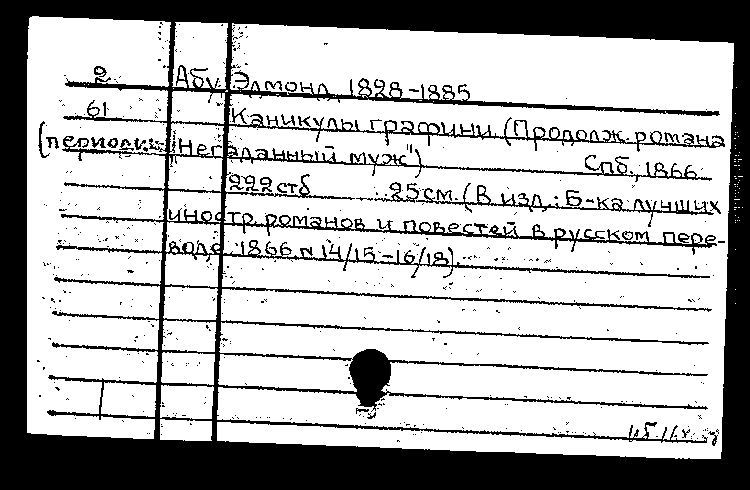 2 Абу Элмонд, 1828-1885
61 Каникулы графини. (Продолж. романа
(периодич. Негаданный муж") Спб., 1866
222стб 25см. (В изд.: Б-ка лучших
иностр. романов и повестей в русском пере-
воде 1866 № 14/15-16/18).